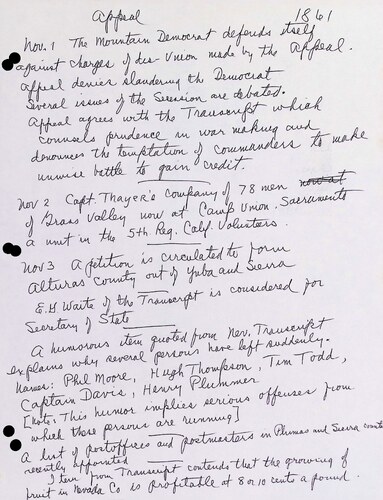 Appeal 1861
Nov. 1 The Mountain Democrat defends itself
against charges of dis-Union made by the Appeal.
Appeal denies slandering the Democrat
Several issues of the Secession are debated.
Appeal agrees with the Transcript which
counsels prudence in war making and
denounces the temptation of commanders to make
unwise battle to gain credit.
Nov 2 Capt. Thayer's Company of 78 men now at
of Grass Valley now at Camp Union. Sacramento
a unit in the 5th Reg. Calif. Volunteers.
Nov 3 A petition is circulated to form
Alturas County out of Yuba and Sierra
E.G Waite of the Transcript is considered for
Secretary of State
A humorous item quoted from Nev. Transcript
explains why several persons have left suddenly.
Names: Phil Moore, Hugh Thompson, Tim Todd,
Captain Davis, Henry Plummer
[Note, This humor implies serious offenses from
which those persons are running]
A list of postoffices and postmasters in Plumas and Sierra counte
recently appointed
Item from Transcript contends that the growing of
fruit in Nevada Co is profitable at 8 or 10 cents a pound.